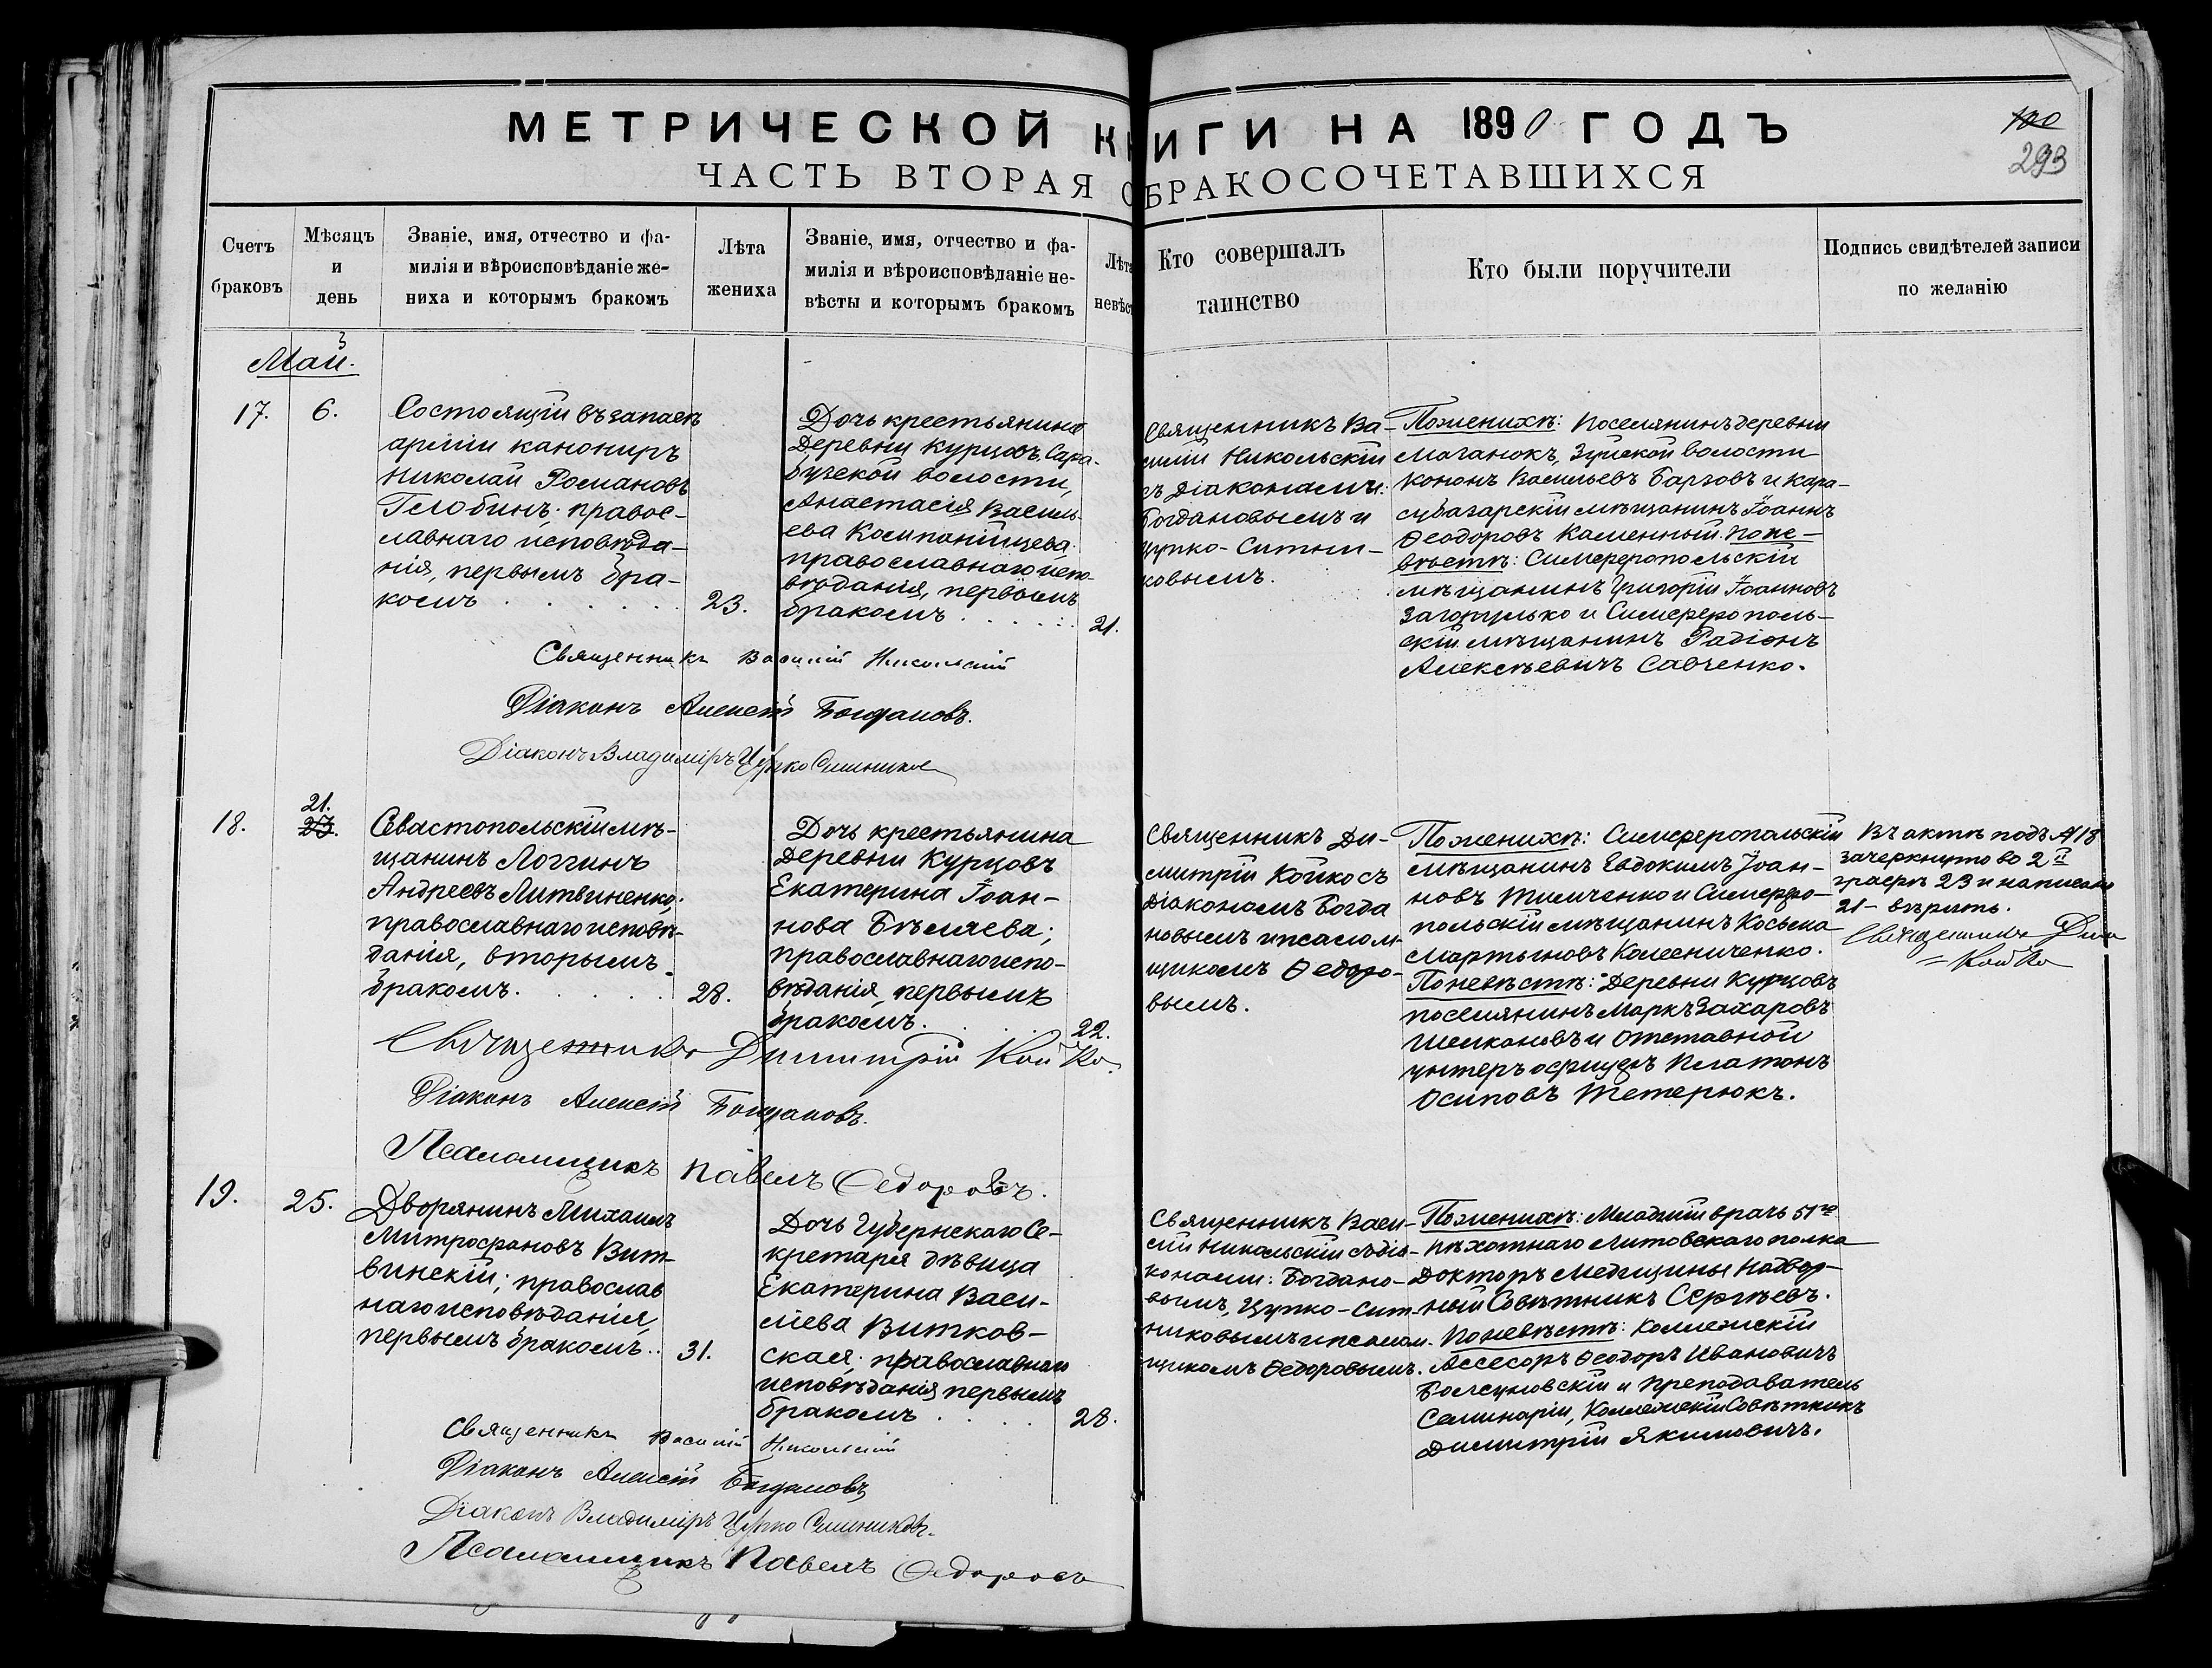 МЕТРИЧЕСКОЙ КНИГИ НА 1890 ГОДЪ
100
293
ЧАСТЬ ВТОРАЯ О БРАКОСОЧЕТАВШИХСЯ
Счетъ
браковъ
Мѣсяцъ
и
день
Званіе, имя, отчество и фа-
милія и вѣроисповѣданіе же-
ниха и которымъ бракомъ
Лѣта
жениха
Званіе, имя, отчество и фа-
милія и вѣроисповѣданіе не-
вѣсты и которымъ бракомъ
Лѣта
невѣст
Кто совершалъ
таинство
Кто были поручители
Подпись свидѣтелей записи
по желанію
Май.
17.
6.
Состоящій въ запасѣ
арміи канониръ
Николай Романовъ
Глобинъ; правос-
лавнаго исповѣда-
нія, первымъ бра-
комъ
23.
Дочь крестьянина
Деревни Курцовъ, Сара-
бузской волости,
Анастасія Василь-
ева Компанійцева
православнаго испо-
вѣданія, первымъ
бракомъ
21.
Священникъ Ва-
силій Никольскій
съ Діаконами:
Богдановымъ и
Цупко-Ситни-
ковымъ.
По женихѣ: Поселянинъ деревни
Мазанокъ, Зуйской волости
Кононъ Васильевъ Барзовъ и Кара-
субазарскій мѣщанинъ Іоаннъ
Ѳеодоровъ Каменный. По не-
вѣстѣ: Симферопольскій
мѣщанинъ Григорій Іоанновъ
Загорулько и Симферополь-
скій мѣщанинъ Радіонъ
Алексѣевичъ Савченко.
Священникъ Василій Никольскій
Діаконъ Алексѣй Богдановъ.
Діаконъ Владиміръ Цупко Ситниковъ
18.
21.
23.
Севастопольскій мѣ-
щанинъ Логгинъ
Андреевъ Литвиненко;
православнаго исповѣ-
данія, вторымъ
бракомъ.
28.
Дочь крестьянина
Деревни Курцовъ
Екатерина Іоан-
нова Бѣляева;
православнаго испо-
вѣданія, первымъ
бракомъ.
22.
Священникъ Ди-
митрій Койко съ
Діакономъ Богда
новымъ и псалом-
щикомъ Ѳедоро-
вымъ.
По женихѣ: Симферопольскій
мѣщанинъ Евдокимъ Іоан-
новъ Тимченко и Симферо-
польскій мѣщанинъ Косьма
Мартыновъ Колесниченко.
По невѣстѣ: Деревни Курцовъ
поселянинъ Маркъ Захаровъ
Шелкановъ и Отставной
унтеръ офицеръ Платонъ
Осиповъ Тетерюкъ.
Въ актѣ подъ № 18
зачеркнуто во 2й
графѣ 23 и написано
21 - вѣрить.
Священникъ Дим
Койко
Священникъ Димитрій Койко.
Діаконъ Алексѣй Богдановъ.
Псаломщикъ Павелъ Ѳедоровъ.
19.
25.
Дворянинъ Михаилъ
Митрофановъ Вит-
винскій; православ
наго исповѣданія,
первымъ бракомъ..
31.
Дочь Губернскаго Се-
кретаря дѣвица
Екатерина Васи-
ліева Витков-
ская; православнаго
исповѣданія, первымъ
бракомъ
28.
Священникъ Васи-
лій Никольскій съ діа-
конами: Богдано-
вымъ, Цупко-Сит-
никовымъ и псалом-
щикомъ Ѳедоровымъ.
По женихѣ: Младшій врачъ 51го
пѣхотнаго Литовскаго полка
Докторъ Медицины Надвор-
ный Совѣтникъ Сергѣевъ.
По невѣстѣ: Коллежскій
Ассесоръ Ѳеодоръ Ивановичъ
Болсуновскій и преподаватель
Семинаріи, Коллежскій Совѣтникъ
Димитрій Якимовичъ.
Священникъ Василій Никольскій
Діаконъ Алексѣй Богдановъ
Діаконъ Владиміръ Цупко Ситниковъ.
Псаломщикъ Павелъ Ѳедоровъ